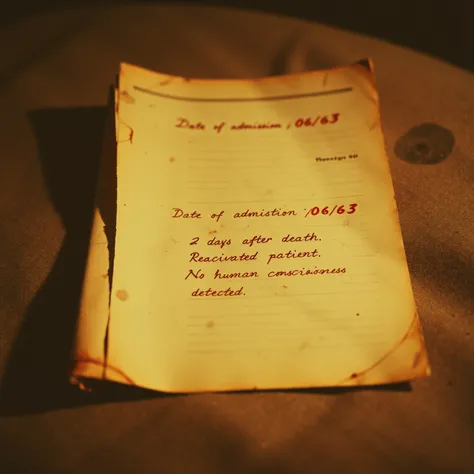 Date of admission ; 06/63
Date of admistion ; 06/63
2 days after death.
Reacivated patient.
No human conscioisness
detected.